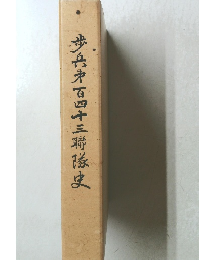 歩兵第百四十三聯隊史